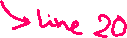 line 20